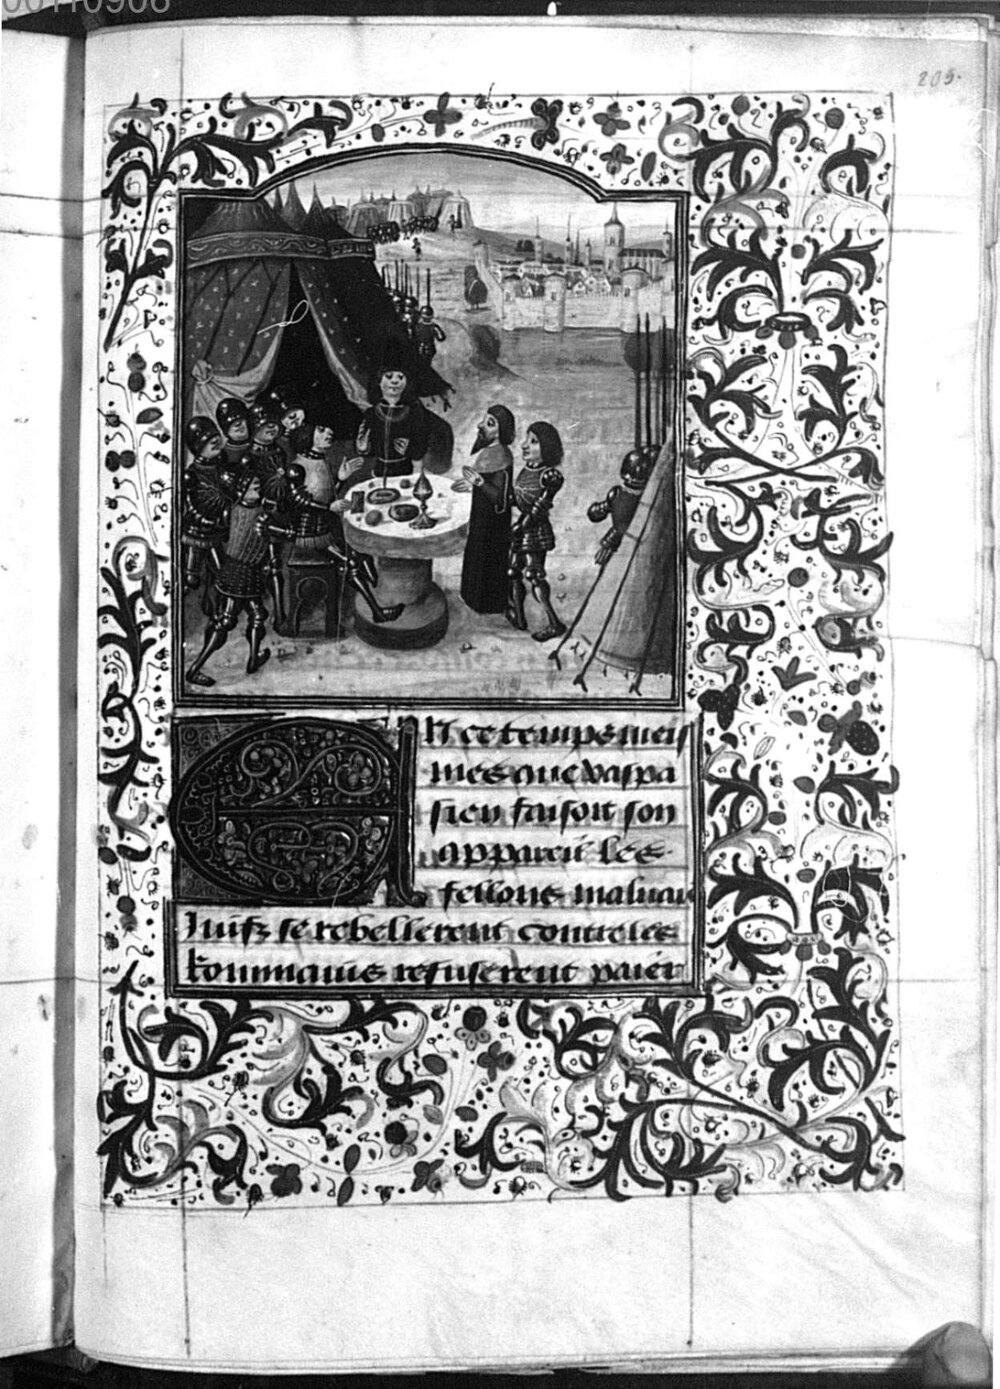 00110908
205.
En ce temps meis
mes que vaspa
sien faisoit son
appareil les
fellons maluais
Juifz se rebellerent contre les
Rommains refuserent paier